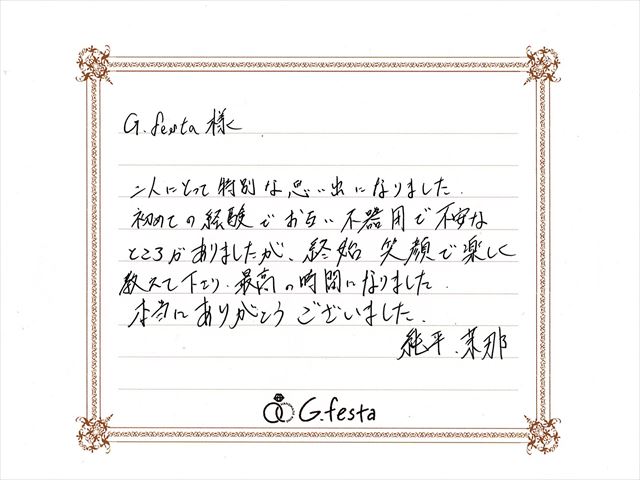 G.festa 様
二人にとって特別な思い出になりました.
初めての経験でお互い不器用で不安な
ところがありましたが、終始 笑顔で楽しく
教えて下さり、最高の時間になりました.
本当にありがとうございました.
純平.菜那
G.festa